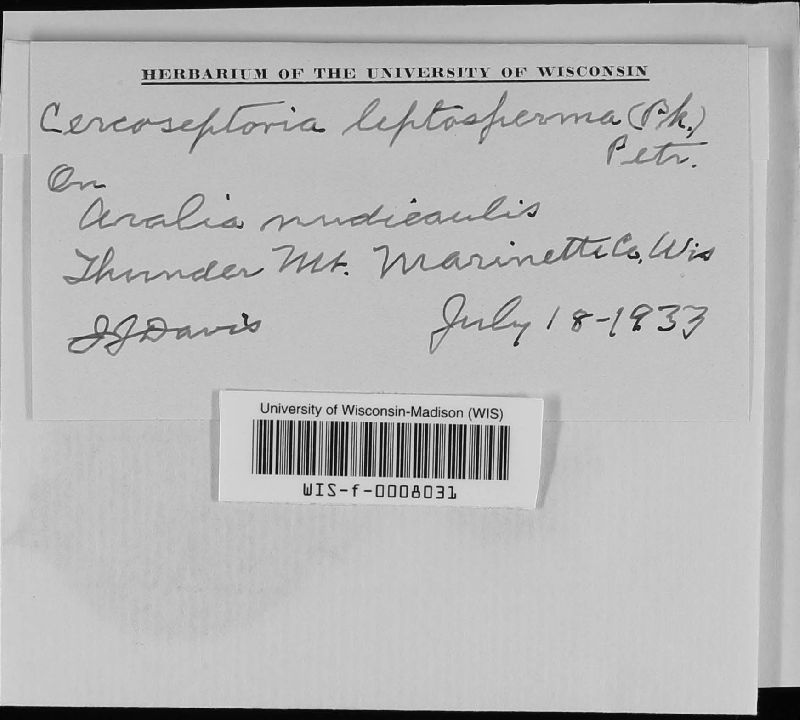 HERBARIUM OF THE UNIVERSITY OF WISCONSIN
Cercoseptoria leptosperma (Pk.)
Petr.
On
Aralia nudicaulis
Thunder Mt. Marinette Co, Wis
JJ Davis July 18-1933
University of Wisconsin-Madison (WIS)
WIS-f-0008031